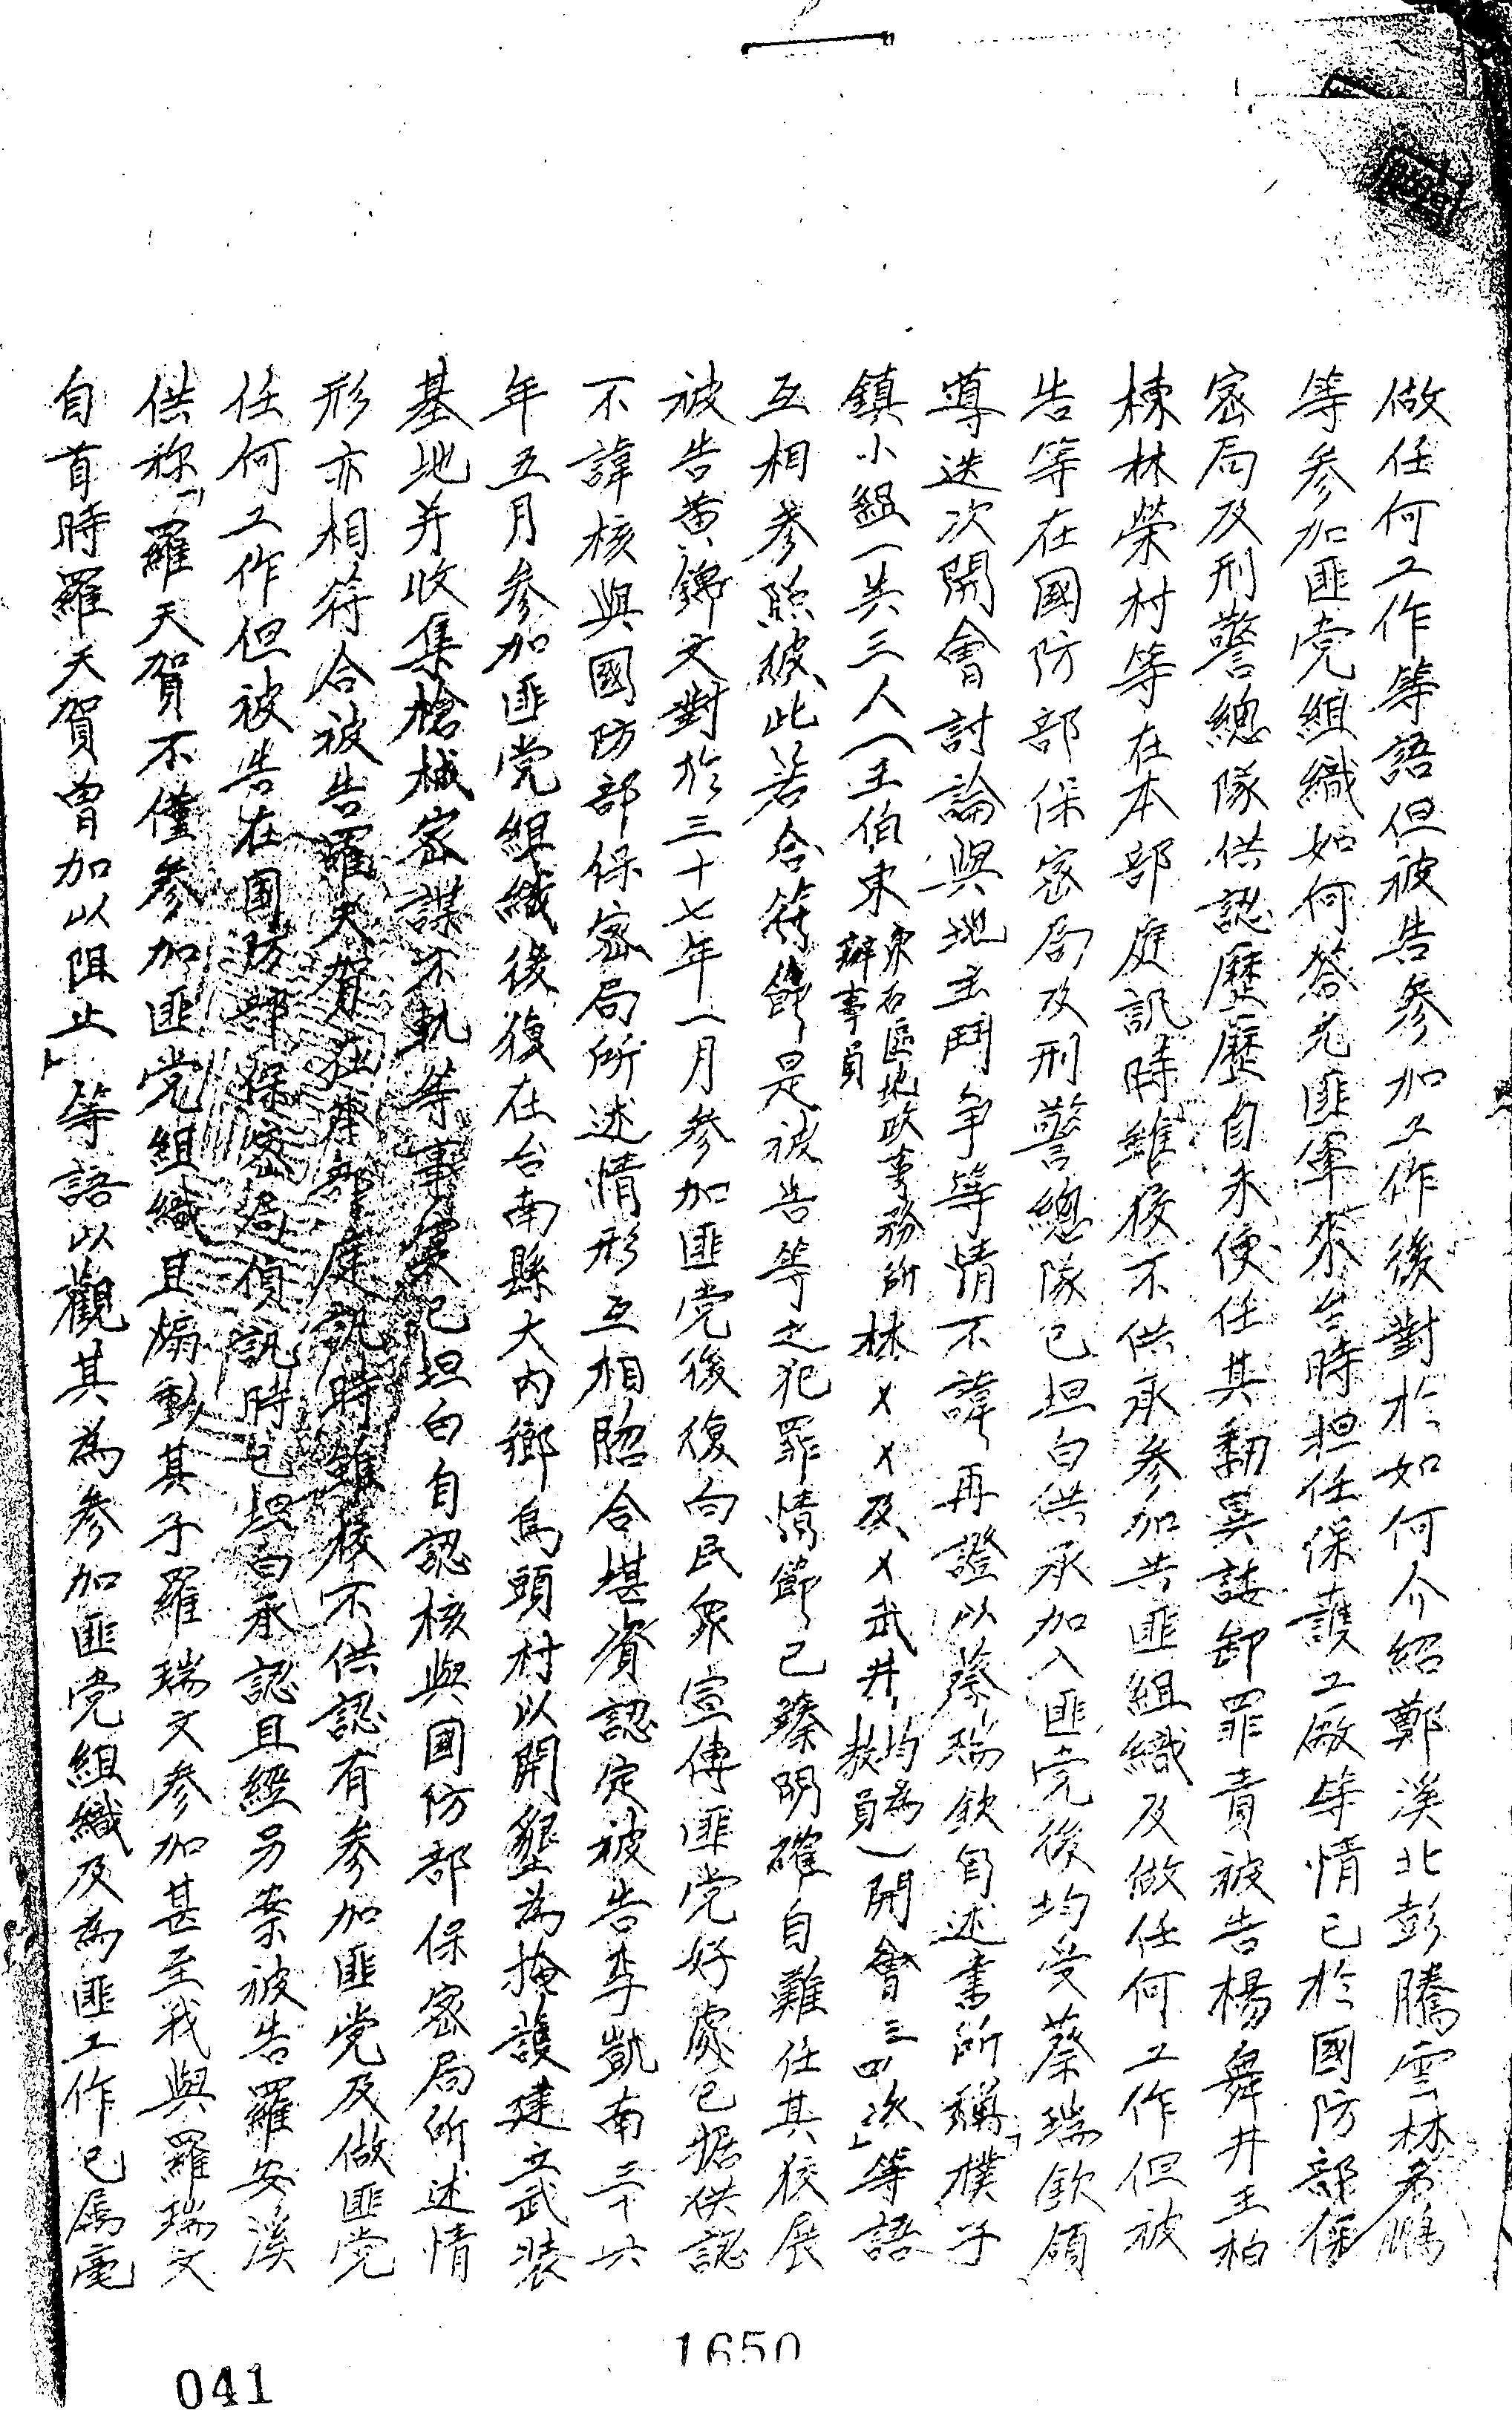 做任何工作等語但被告參加工作後對於如何介紹鄭溪北彭騰雲林君鵬
等參加匪党組織如何答允匪軍來台時担任保護工廠等情已於國防部保
密局及刑警總隊供認歷歷自未便任其翻異諉卸罪責被告楊舞井王柏
棟林榮村等在本部庭訊時雖狡不供承參加共匪組織及做任何工作但被
告等在國防部保密局及刑警總隊已坦白供承加入匪党後均受蔡瑞欽領
導迭次開會討論與地主鬥争等情不諱再證以蔡瑞欽自述書所稱「樸子
鎮小組一共三人(王伯東東石區地政事務所辦事員林ㄨㄨ及ㄨ武井均為教員)開會三四次」等語
互相參照彼此若合符節是被告等之犯罪情節已臻明確自難任其狡展
被告黄錦文對於三十七年一月參加匪党後復向民眾宣傳匪党好處已据供認
不諱核與國防部保密局所述情形互相脗合堪資認定被告李凱南三十六
年五月參加匪党組織後復在台南縣大内鄉烏頭村以開墾為掩護建立武装
基地并收集槍械密謀不軌等事實已坦白自認核與國防部保密局所述情
形亦相符合被告羅天賀在本部庭訊時雖狡不供認有參加匪党及做匪党
任何工作但被告在国防部保密局偵訊時已坦白承認且經另案被告羅安溪
供称「羅天賀不僅參加匪党組織且煽動其子羅瑞文參加甚至我與羅瑞文
自首時羅天賀曾加以阻止」等語以觀其為參加匪党組織及為匪工作已属毫
1650
041